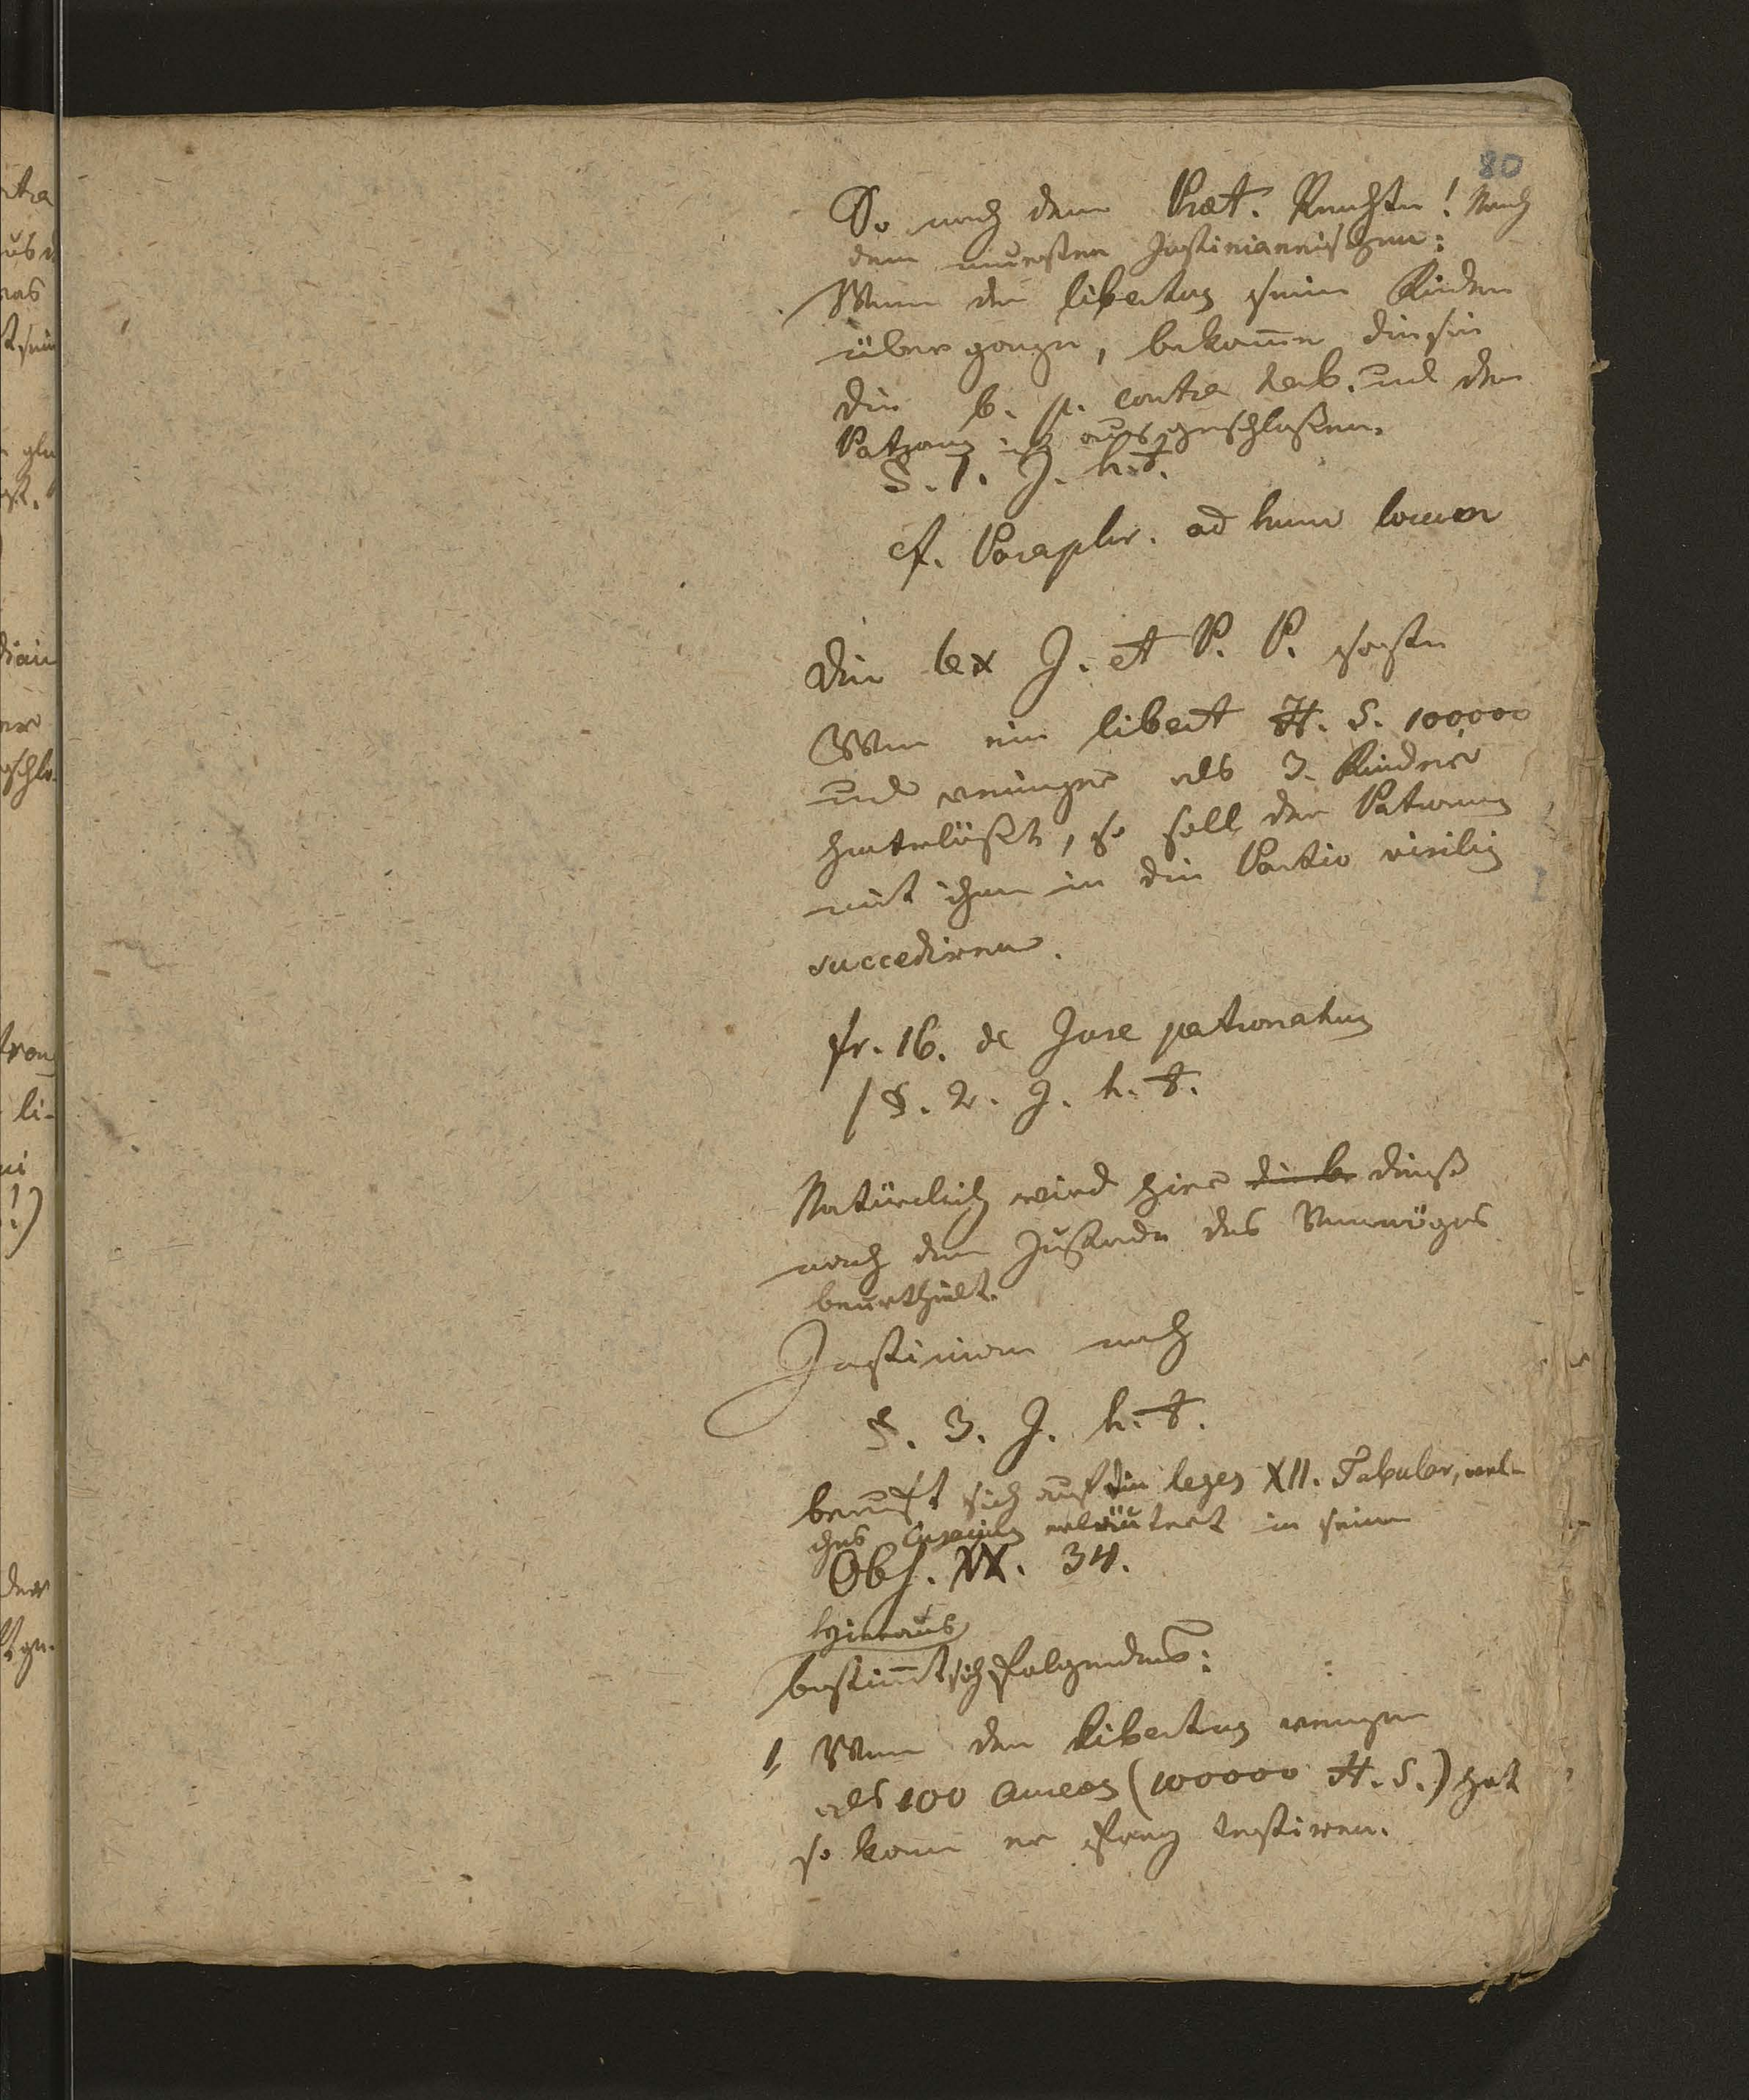 80
So nach dem Præt. Rechte! Nach
dem neuesten Justinianischen:
Wenn der libertus seine Kinder
übergangen, bekommen diese
die b. p. contra tab. und der
Patronus ist ausgeschlossen.
§. 1. J. h. t.
cf. Paraphr. ad hunc locum
Die lex J. et P. P. sagte
Wenn ein libert H. S. 100000
und weniger als 3. Kinder
hinterläßt, so soll der Patronus
mit ihnen in die Portio virilis
succediren.
fr. 16. de Jure patronatus
/ §. 2. J. h. t.
Natürlich wird hier die b. dieß
nach dem Zustande des Vermögens
beurtheilt.
Justinian nach
§. 3. J. h. t.
beruft sich auf die leges XII. Tabular, wel-
ches Cujacius erläutert in seinen
Obs. XX. 34.
Hieraus
bestimmt sich Folgendes:
1, Wenn der Libertus weniger
als 100 aureos (100000 H. S.) hat
so kann er frey testiren.